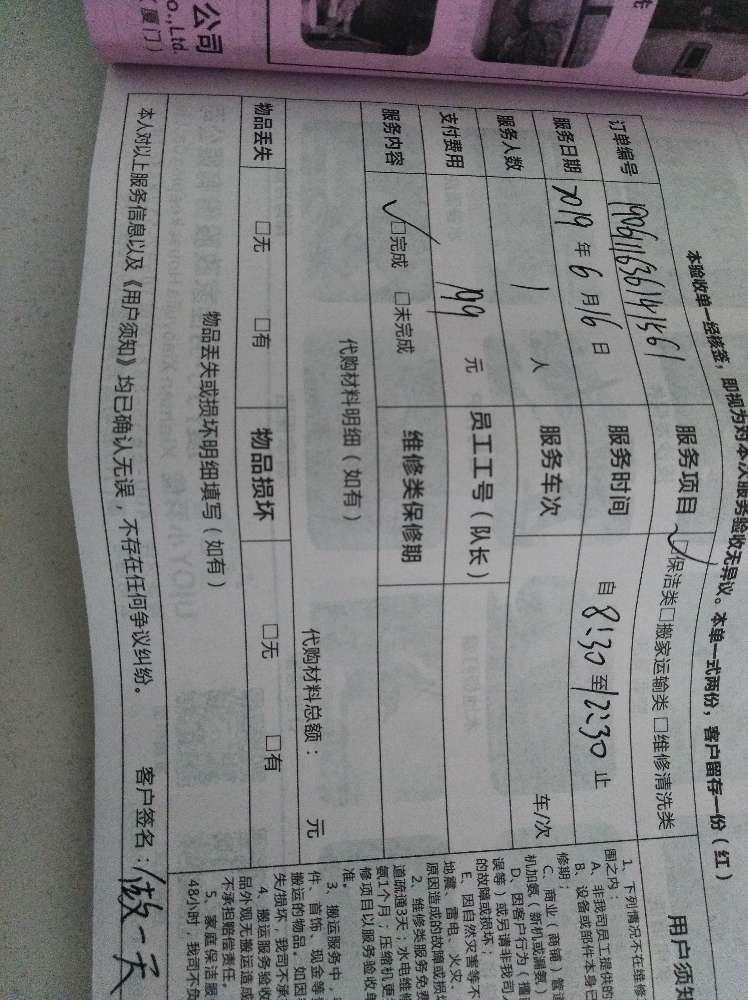 公司
o.,Ltd.
厦门)
本验收单一经核签，即视为对本次服务验收无异议。本单一式两份，客户留存一份（红）
订单编号 服务项目 ☑保洁类□搬家运输类 □维修清洗类
服务日期 2019 年 6 月 16 日 服务时间 自 8:30 至 12:30 止
服务人数 1 人 服务车次 车/次
支付费用 199 元 员工工号（队长）
服务内容 ☑完成 □未完成 维修类保修期
代购材料明细（如有）
代购材料总额： 元
物品丢失 □无 □有 物品损坏 □无 □有
物品丢失或损坏明细填写（如有）
本人对以上服务信息以及《用户须知》均已确认无误，不存在任何争议纠纷。 客户签名：做一天
用户须
1、下列情况不在维修
围之内：
A、非我司员工提供的
B、设备或部件本身已
修期；
C、商业（商铺）管道
机加氨（新机或漏氨）
D、因客户行为（擅
误等）或另请非我司人
的故障或损坏；
E、因自然灾害等不
地震、雷电、火灾、
原因造成的故障或损坏
2、维修类服务免费
道疏通3天；水电维修
氨1个月；压缩机更
修项目以服务验收单
准。
3、搬运服务中，
件、首饰、现金等
搬运的物品。如因
失/损坏，我司不承
4、搬运服务验收
品外观无搬运造成
不承担赔偿责任。
5、家庭保洁服
48小时，我司不负